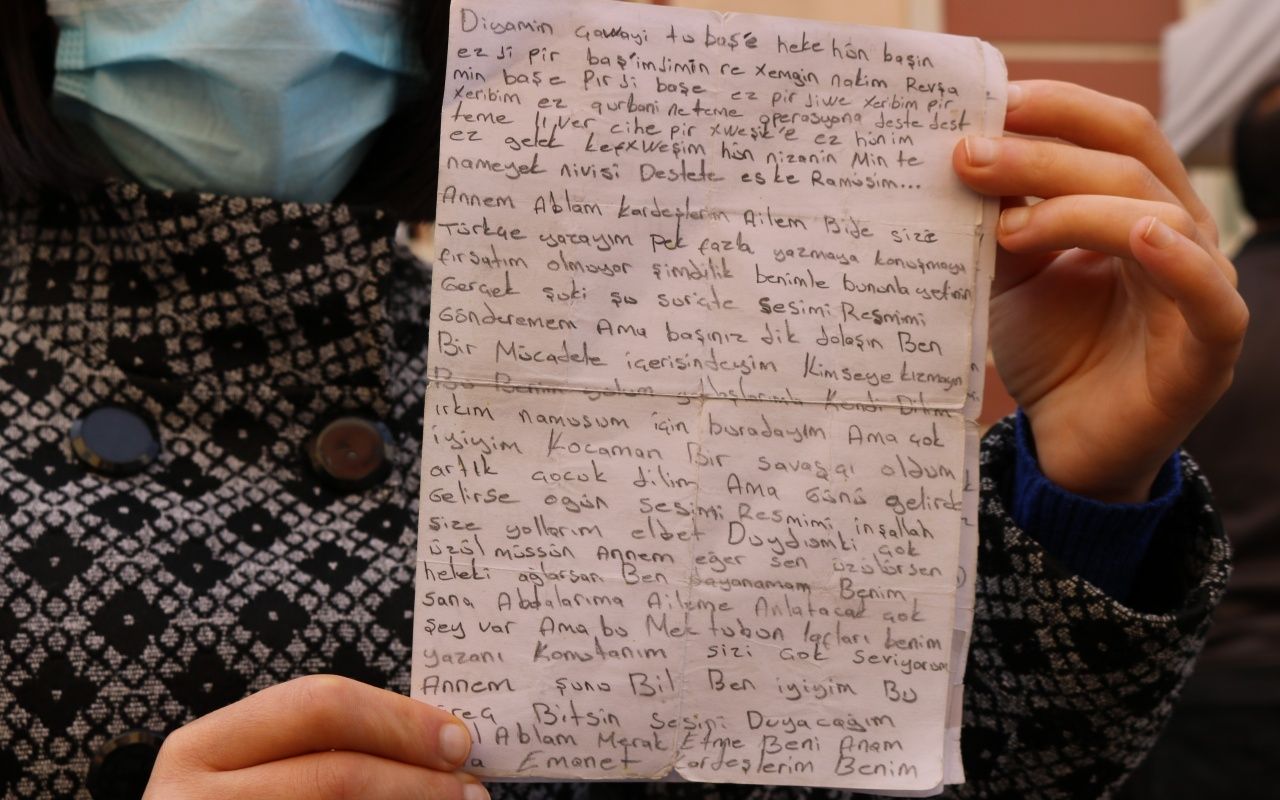 Diyamin Gawayi tu baş'e heke hûn başin
ez ji pir baş'im jimin re xemgin nakim Revşa
min başe pir ji başe ez pir jiwe xeribim pir
xeribim ez qurbani ne teme operasyona deste dest
teme li ver cihe pir xweşik'e ez hûnim
ez gelek kefxweşim hûn nizanin Min te
nameyek nivisi Destete es ke Ramûsim...
Annem Ablam Kardeşlerim Ailem Bide size
Türkçe yazayım pek fazla yazmaya konuşmaya
fırsatım olmuyor şimdilik benimle bununla yetinin
Gerçek şuki şu sürçte Sesimi Resmimi
Gönderemem Ama başınız dik dolaşın Ben
Bir Mücadele içerisindeyim Kimseye kızmayın
Bu Benim yolum Kendi Dilim
ırkım namusum için buradayım Ama çok
iyiyim Kocaman Bir savaşçı oldum
artık çocuk dilim Ama Günü gelirde
Gelirse ogün sesimi Resmimi inşallah
size yollarım elbet Duydumki çok
üzülmüssün Annem eğer sen üzülürsen
heleki ağlarsan Ben dayanamam Benim
sana Ablalarıma Aileme Anlatacak çok
şey var Ama bu Mektubun laçları benim
yazanı Komutanım sizi çok seviyorum
Annem şunu Bil Ben iyiyim Bu
Bitsin Sesini Duyacağım
Ablam Merak Etme Beni Anam
Emanet Kardeşlerim Benim